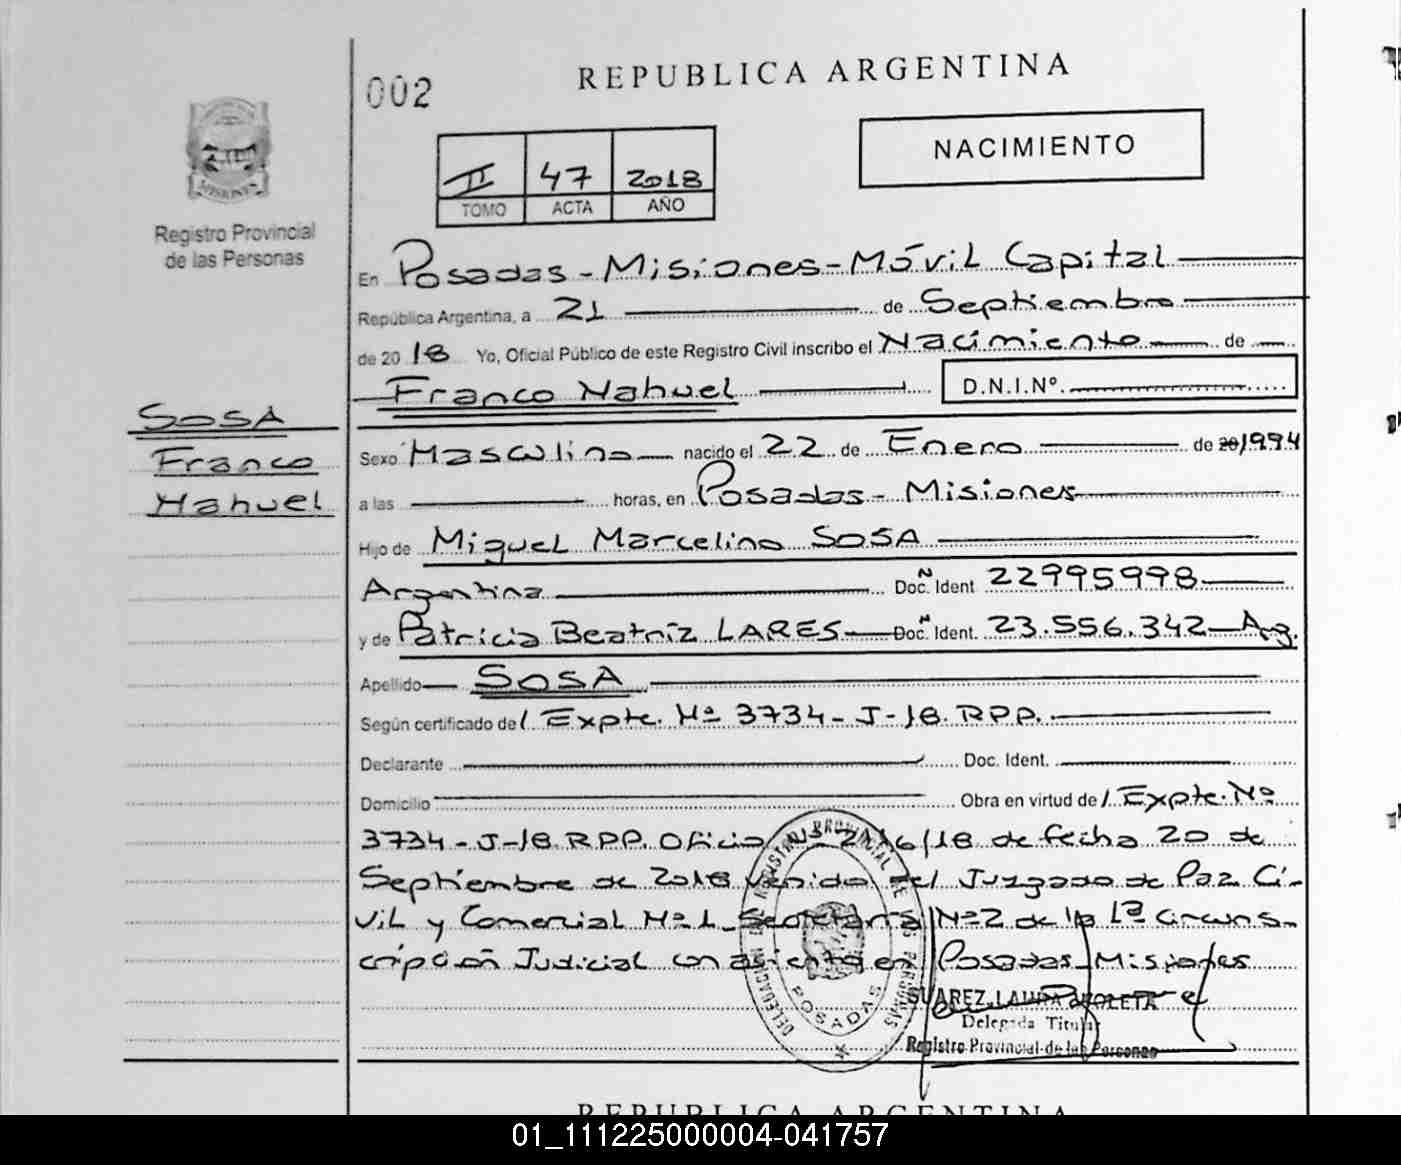 002
REPUBLICA ARGENTINA
NACIMIENTO
II 47 2018
TOMO ACTA AÑO
MISIONES
Registro Provincial
de las Personas
En Posadas - Misiones - Móvil Capital
República Argentina, a 21 de Septiembre
de 2018 Yo, Oficial Público de este Registro Civil inscribo el Nacimiento de
Franco Nahuel D.N.I.Nº.
SOSA
Franco
Nahuel
Sexo Masculino nacido el 22 de Enero de 20 1994
a las horas, en Posadas - Misiones
Hijo de Miguel Marcelino SOSA
Argentina Doc. Ident 22995998
y de Patricia Beatriz LARES Doc. Ident. 23.556.342 - Arg.
Apellido SOSA
Según certificado de / Expte. Nº 3734 - J - 18. RPP.
Declarante Doc. Ident.
Domicilio Obra en virtud de / Expte. Nº
3734 - J - 18. RPP. Oficio Nº /18 de fecha 20 de
Septiembre de 2018 venido del Juzgado de Paz Ci-
vil y Comercial Nº 1 Secretaría Nº 2 de la 1ª Circuns-
cripción Judicial con asiento en Posadas - Misiones
SUAREZ, LAURA VIOLETA
Delegada Titular
Registro Provincial de las Personas
DELEGACION DEL REGISTRO PROVINCIAL DE LAS PERSONAS
POSADAS
REPUBLICA ARGENTINA
01_111225000004-041757